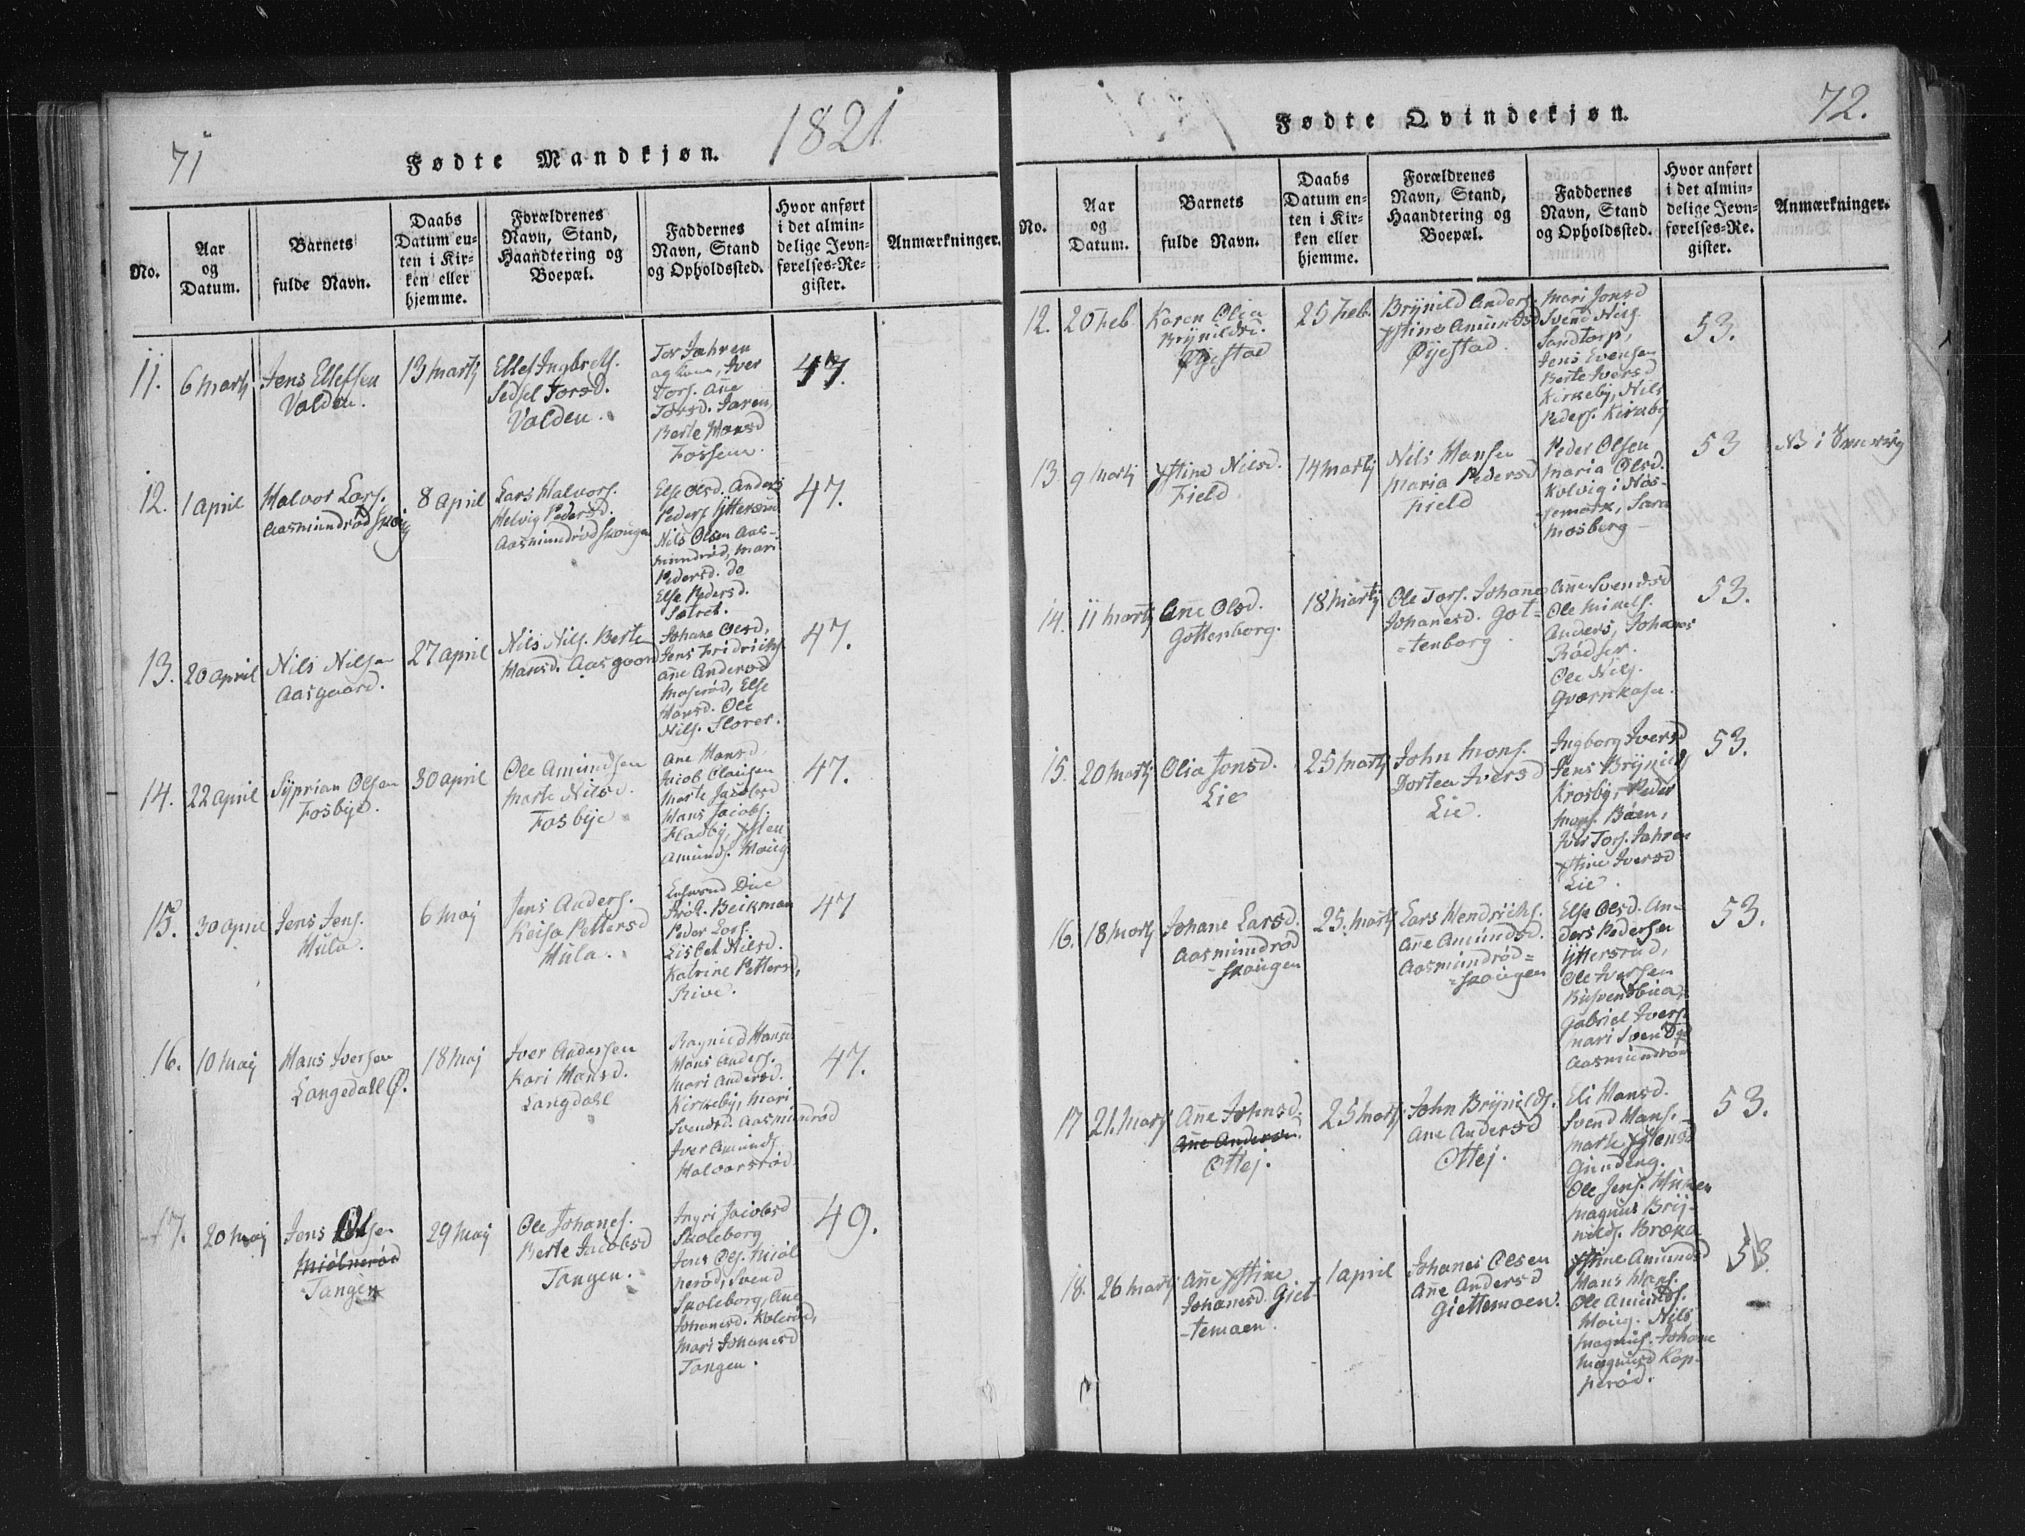 71
Fødte Mandkjøn.
1821
No.
Aar
og
Datum.
Barnets
fulde Navn.
Daabs
Datum en-
ten i Kir-
ken eller
hjemme.
Forældrenes
Navn, Stand,
Haandtering og
Boepæl.
Faddernes
Navn, Stand
og Opholdssted.
Hvor anført
i det almin-
delige Jevn-
førelses-Re-
gister.
Anmærkninger.
11.
6 Martj
Jens Ellefsen
Valden.
13 martj
Ellef Ingbretts.
Sedsel Torsd.
Valden.
Tor Jahren
og kone, Iver
Tors. Añe
Torsd. Jaren,
Berte Hansd
Fossem.
47.
12.
1 april
Halvor Lars.
Aasmundrød Skoug
8 april
Lars Halvors.
Helvig Pedersd.
Aasmundrød Skougen
Else Olsd. Anders
Peders Ytterød
Nils Olsen Aas-
mundrød, Mari
Pedersd. do
Else Pedersd.
Sætret.
47.
13.
20 april
Nils Nilsen
Aasgaard.
27 april
Nils Nils. Berte
Hansd. Aasgaard
Johane Olsd,
Jens Fridrichs.
Añe Andersd
Moserød, Else
Hansd. Ole
Nils. Floret.
47.
14.
22 april
Syprian Olsen
Fosbye.
30 april
Ole Amundsen
Marte Nilsd.
Fosbye
Ane Hansd.
Jacob Clausen
Marte Jacobsd
Hans Jacobs.
Fladby, Ysten
Amunds. Houg.
47.
15.
30 april
Jens Jens.
Hula.
6 maj
Jens Anders.
Keisa Pettersd
Hula.
Prok. Beikman
Peder Lars.
Lisbet Nilsd.
Katrine Pettersd,
Rive.
47
16.
10 maj
Hans Iversen
Langedahl Ø.
18 maj
Iver Andersen
Kari Hansd.
Langdahl
Ragnild Hansd
Hans Anders.
Mari Andersd.
Kirkeby, Mari
Svendsd. Aasmundrød
Iver Amunds.
Halvorsrød
47.
17.
20 maj
Jens Olsen
Miølnerød
Tangen
29 maj
Ole Johanes.
Berte Jacobsd
Tangen.
Ingri Jacobsd
Skoleborg
Jens Ols. Miøl
nerød, Svend
Skoleborg, Añe
Johanesd. Kolerød,
Mari Johanesd
Tangen.
49.
72.
Fødte Qvindekjøn.
No.
Aar
og
Datum.
Barnets
fulde Navn.
Daabs
Datum en-
ten i Kir-
ken eller
hjemme.
Forældrenes
Navn, Stand,
Haandtering og
Boepæl.
Faddernes
Navn, Stand
og Opholdssted.
Hvor anført
i det almin-
delige Jevn-
førelses-Re-
gister.
Anmærkninger.
12.
20 Feb
Karen Olea
Brynildsd.
Øyestad
25 Feb.
Brynild Anders.
Ystine Amundsd
Øyestad
Mari Jonsd
Svend Nils
Sandtorp,
Jens Evensen
Berte Iversd
Kirkeby, Nils
Peders. Kirkeby
53.
13.
9 Martj
Ystine Nilsd.
Field.
14 martj
Nils Hansen
Maria Pedersd
Field
Peder Olsen
Maria Olsd.
Kolvig i Nøs-
-temark, Sara
Mosberg
53
NB i
14.
11 martj
Añe Olsd.
Gottenborg.
18 martj
Ole Tors. Johañe
Johanesd. Got-
-tenborg
Añe Svendsd
Ole Mikels.
Anders, Johanes
Rødser.
Ole Nils.
Qvernkasa.
53.
15.
20 martj
Olia Jonsd.
Lie
25 martj
John Mons.
Dortea Iversd
Lie.
Ingborg Iversd
Jens Brynild
Krosby, Peder
Mons. Bøen,
Iver Tors. Jahren
Ystine Iversd
Lie.
53.
16.
18 martj
Johane Larsd.
Aasmundrød
-skougen
25. martj
Lars Hendrichs.
Añe Amundsd.
Aasmundrød=
=skougen
Else Olsd. An-
ders Pedersen
Yttersrud,
Ole Iversen
Gabriel Ivers.
Mari Svendsd
Aasmundrød
53.
17
21. martj
Añe Johnsd.
Añe Andersd.
Ottej.
25 martj
John Brynilds.
Ane Andersd
Ottej.
Eli Hansd.
Svend Hans.
Marte Ystensd
Gundeng.
Ole Jens.
Magnus Bry-
nilds. Bræka
53.
18.
26 martj
Añe Ystine
Johanesd. Giet-
-temaen.
1 april
Johanes Olsen
Añe Andersd
Giettemoen.
Ystine Amundsd
Hans Hans.
Ole Amunds.
Houg. Nils
Magnus. Johane
Magnusd Kop-
perød.
53.